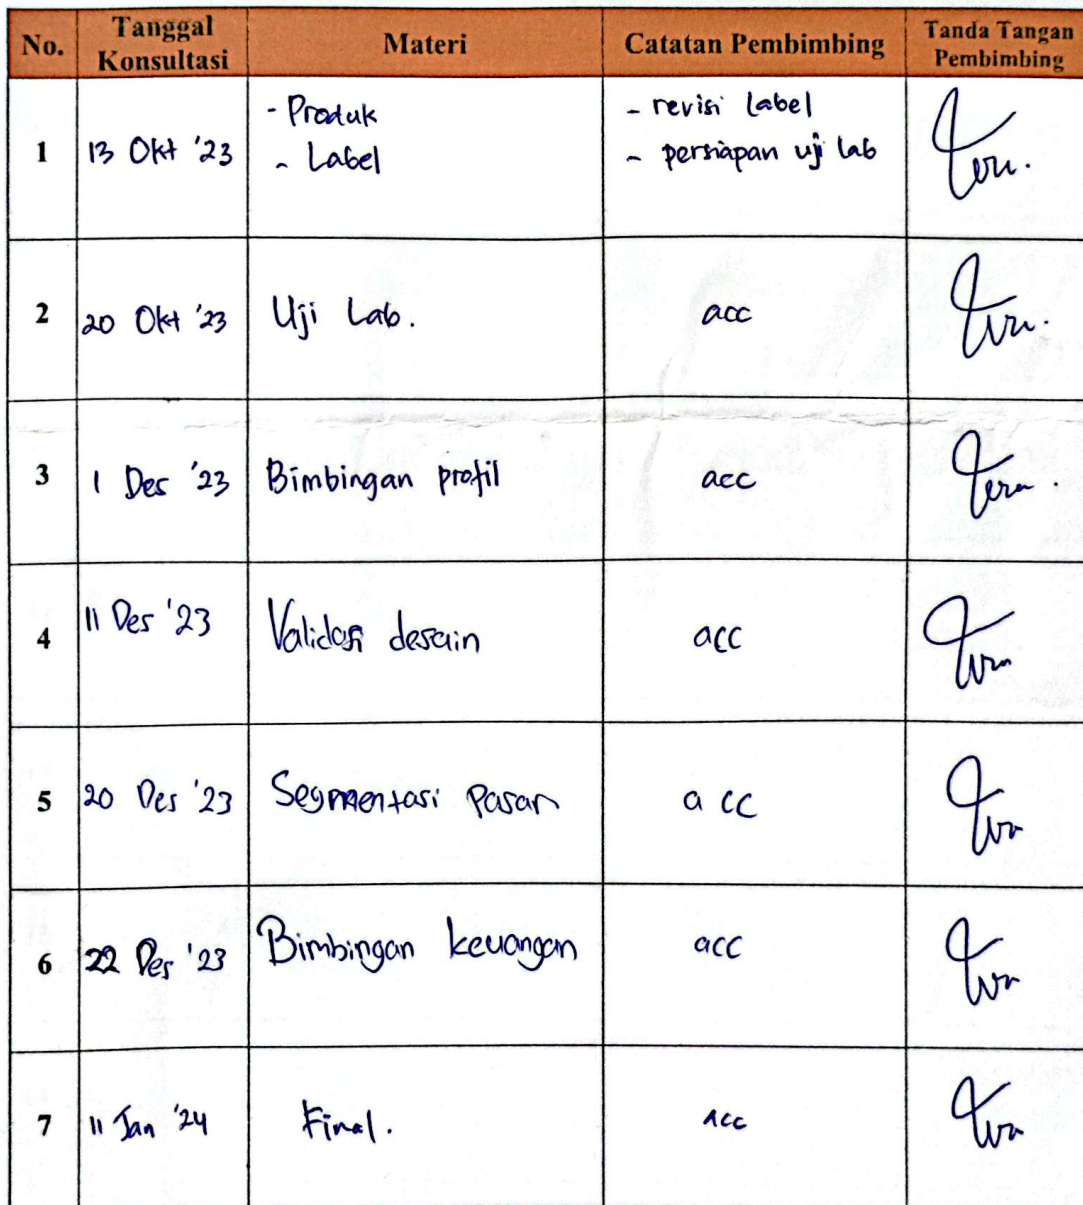 No. Tanggal Konsultasi Materi Catatan Pembimbing Tanda Tangan Pembimbing
1 13 Okt '23 - Produk - revisi label
- Label - persiapan uji lab
2 20 Okt '23 Uji Lab. acc
3 1 Des '23 Bimbingan profil acc
4 11 Des '23 Validasi desain acc
5 20 Des '23 Segmentasi Pasar acc
6 22 Des '23 Bimbingan keuangan acc
7 11 Jan '24 Final. acc